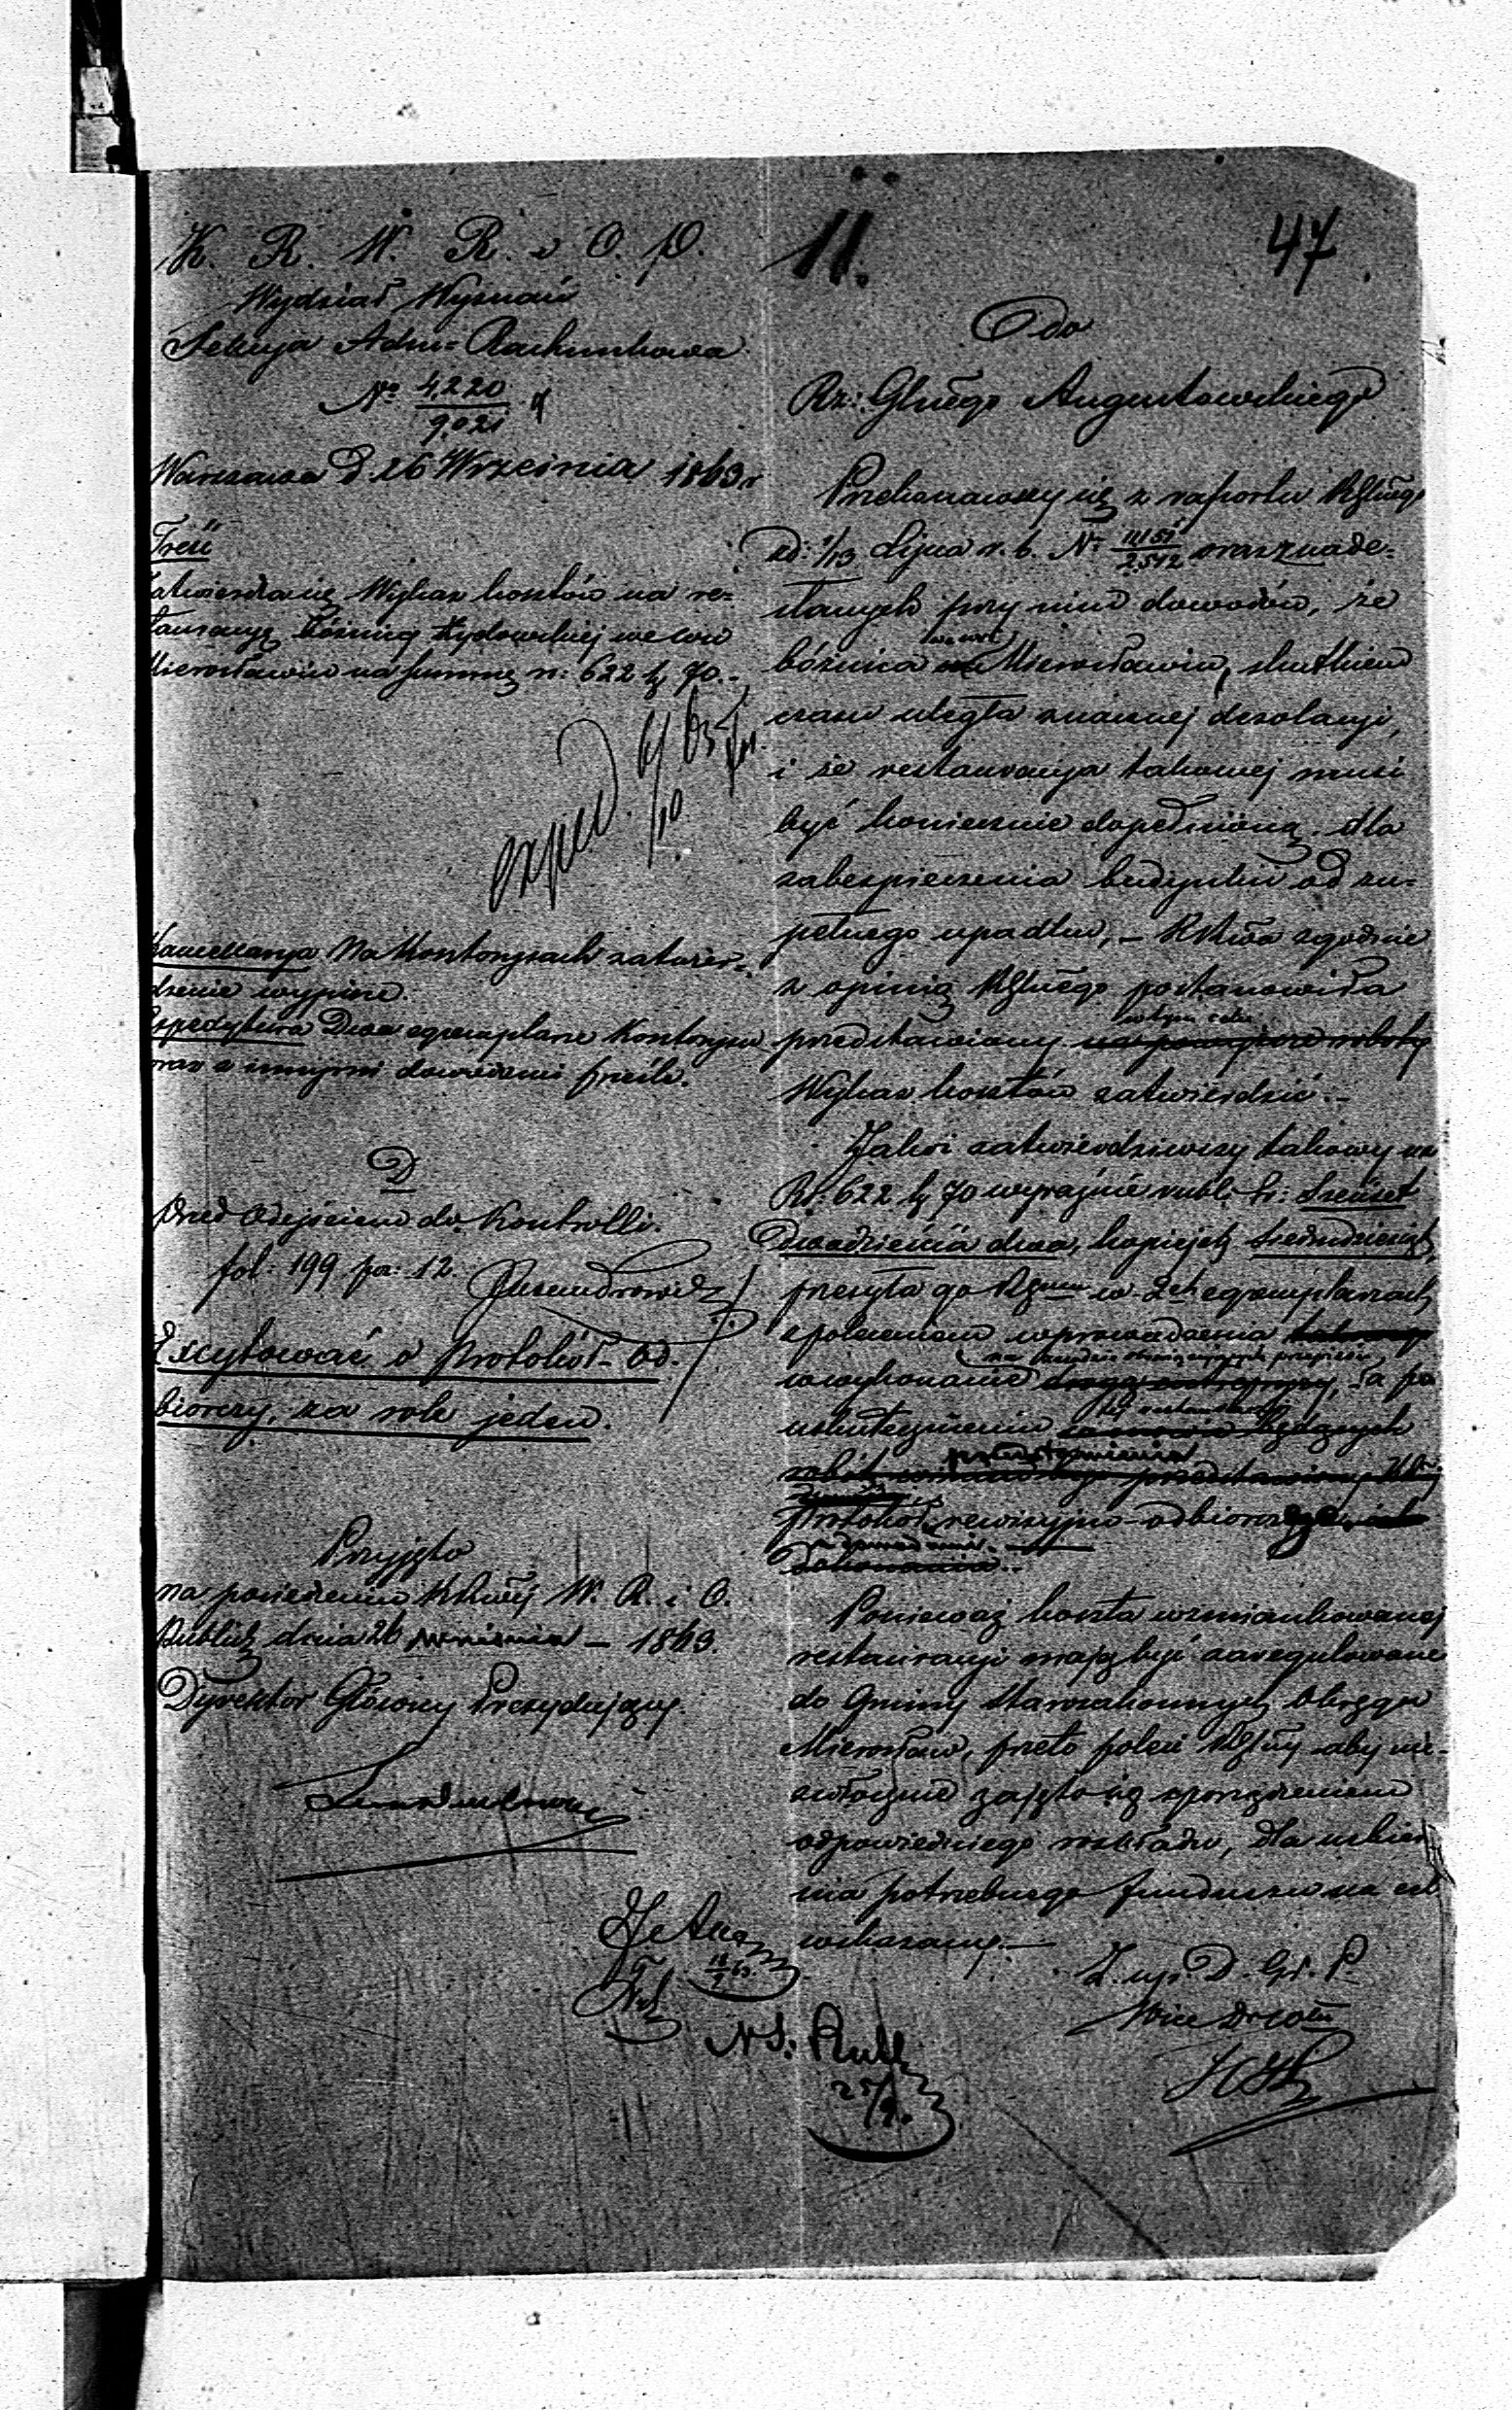 K. R. W. R. i O. P.
Wydział Wyznań
Sekcya Adm= Rachunkowa
No 4,220
9,021
Warszawa d 26 Września 1863 r
Treść
Zatwierdza się Wykaz kosztów na re=
stauracyę Bóżnicy Żydowskiej we wsi
Mirosławiu na summę rs: 622 k 70.-
exped. 6/10 63
Kancellarya Na Kosztorysach zatwier=
dzenie wypisze.
Expedytura Dwa egzemplarze Kosztorysu
oraz z innymi dowodami prześle.
D
Przed Odejściem do Kontrolli.
fol: 199 poz: 12.
Excytować o protokół od=
biorczy, za rok jeden.
Przyjęto
na posiedzeniu KRząwej W. R. i O.
Publicz dnia 26 września – 1863.
Dyrektor Główny Prezydujący.
11.
47
Do
Rz: Gluego Augustowskiego
Przekonawszy się z raportu RGluego
zd: 1/13 Lipca r. b. No 11151/2542 oraz nade=
słanych przy nim dowodów, że
bóżnica we wsi Mirosławiu, skutkiem
czasu uległa znacznej dezolacyi,
i że restauracya takowej musi
być koniecznie dopełnioną dla
zabezpieczenia budynku od zu=
pełnego upadku, – KRwa zgodnie
z opinią RGluego postanowiła
w tym celu
przedstawiony na powyższe roboty
Wykaz kosztów zatwierdzić.–
Jakoż zatwierdziwszy takowy na
Rs: 622 k 70 wyraźnie rubli sr: Sześćset
Dwadzieścia dwa, kopiejek siedmdziesiąt,
przesyła go RGmu w 2ch egzemplarzach
z poleceniem wprowadzenia takowego
na zasadzie obowiązujących przepisów
w wykonanie drogą entrepryzy, a po
uskutecznieniu tej restauracyi
przedstawienia
protokół rewizyjno-odbiorczego
Ponieważ koszta wzmiankowanej
restauracyi mają być zaregulowane
do Gminy Starozakonnych Okręgu
Mirosław, przeto poleci RGluy aby nie=
zwłocznie zajęto się sporządzeniem
odpowiedniego rozkładu, dla uzbiera
nia potrzebnego funduszu na cel
wskazany.–
Z. up. D. Gł. P
Vice Dyrektor
N S: Rull
25/9.